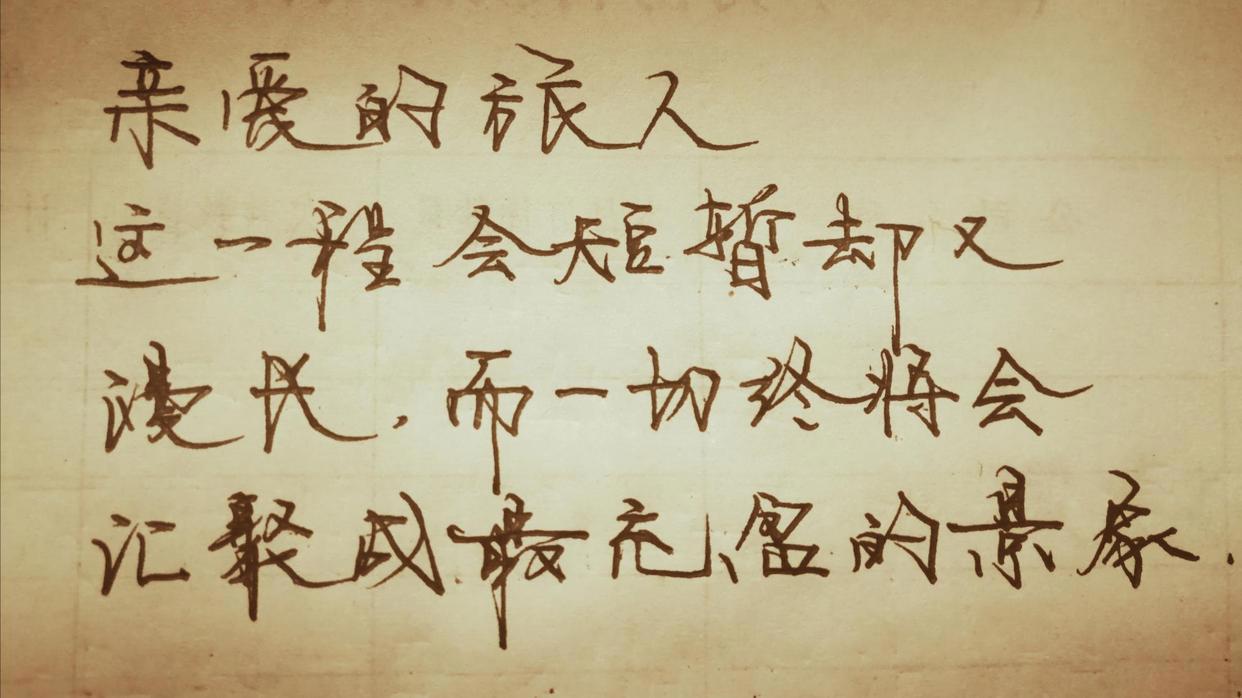 亲爱的旅人
这一程会短暂却又
漫长，而一切终将会
汇聚成最充盈的景象.